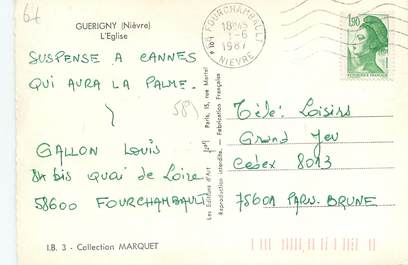 67
GUERIGNY (Nièvre)
L'Eglise
58 FOURCHAMBAULT
18H45
1-6
1987
NIEVRE
1,90
REPUBLIQUE FRANÇAISE
SUSPENSE A CANNES
QUI AURA LA PALME.
58)
GALLON Louis
84 bis Quai de Loire
58600 FOURCHAMBAULT
Télé: Loisirs
Grand Jeu
Cedex 8013
75601 PARIS. BRUNE
Les Editions d'Art Paris, 15, rue Martel
Reproduction interdite. - Fabrication Française
I.B. 3 - Collection MARQUET